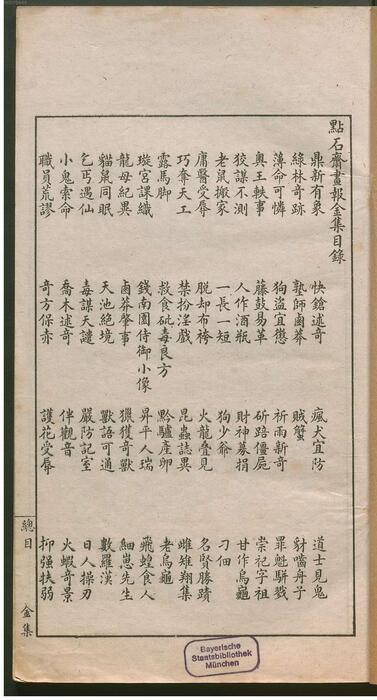 點石齋畫報金集目錄
鼎新有象 快鎗述奇 瘋犬宜防 道士見鬼
綠林奇跡 塾師鹵莽 賊蟹 豺噬舟子
薄命可憐 狗盜宜懲 祈雨新奇 罪魁騈戮
奧王軼事 藤鼓易革 斫踣僵屍 崇祀字祖
狡謀不測 人作酒瓶 財神募捐 甘作烏龜
老鼠搬家 一長一短 狗少爺 刁佃
庸醫受辱 脱却布袴 火龍疊見 名賢勝蹟
巧奪天工 禁扮淫戲 昆蟲誌異 雌雉翔集
露馬脚 救食砒毒良方 黔驢產卵 老烏龜
璇宮課織 錢南園侍御小像 昇平人瑞 飛蝗食人
龍母紀異 鹵莽肇事 獵獲奇獸 細崽先生
貓鼠同眠 天池絕境 獸語可通 數羅漢
乞丐遇仙 毒謀天譴 嚴防記室 日人操刃
小鬼索命 喬木述奇 伴觀音 火蝦奇景
職員荒謬 奇方保赤 護花受辱 抑强扶弱
總目 金集
Bayerische
Staatsbibliothek
München